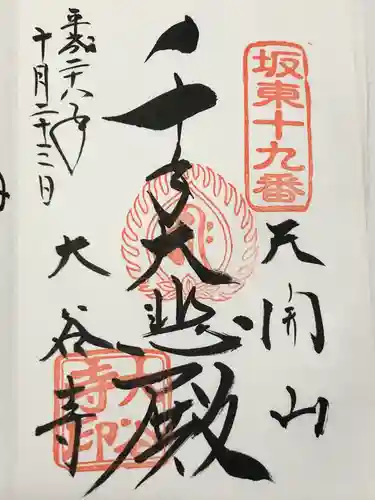 坂東十九番
天開山
千手大悲殿
大谷寺
平成二十八年
十月二十三日
大谷寺印